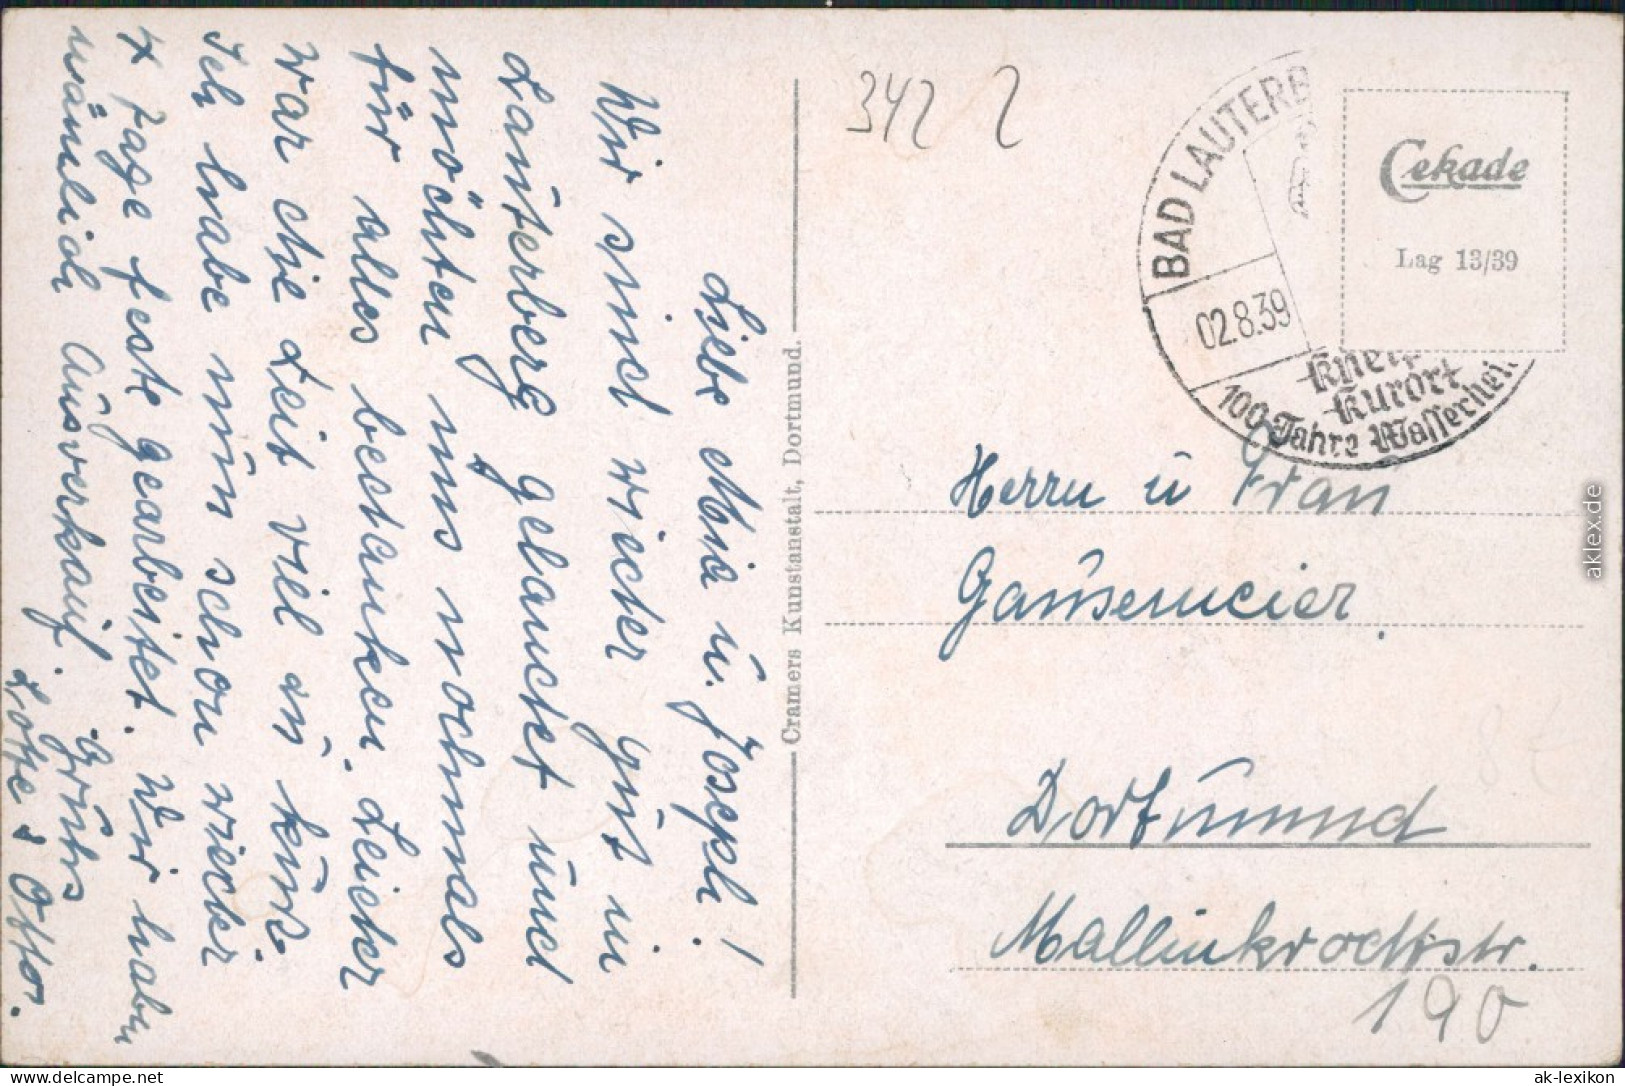 Liebe Mia u. Joseph!
Wir sind wieder gut in
Lauterberg gelandet und
möchten uns nochmals
für alles bedanken. Leider
war die Zeit viel zu kurz.
Ich habe nun schon wieder
4 Tage feste gearbeitet. Wir haben
nämlich Ausverkauf. Gruß
Lotte & Otto.
Cramers Kunstanstalt, Dortmund.
342 2
BAD LAUTERB
02.8.39
Kurort
100 Jahre Wasserheil
Cekade
Lag 13/39
Herrn u Frau
Gausemeier
Dortmund
Mallinkrodtstr.
190
aklex.de
www.delcampe.net
ak-lexikon